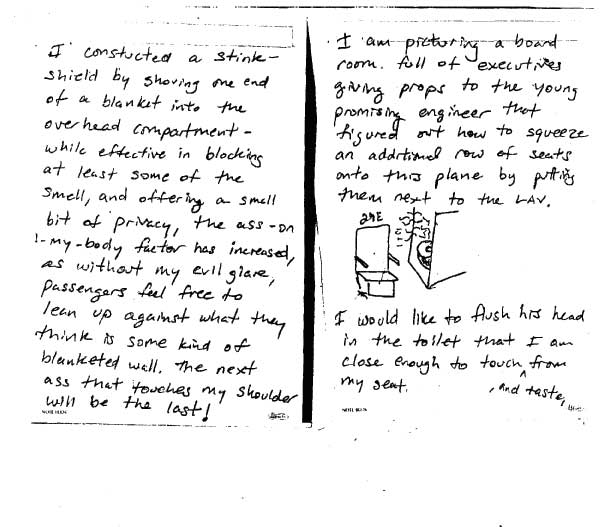 I constucted a stink-
shield by shoving one end
of a blanket into the
overhead compartment -
while effective in blocking
at least some of the
smell, and offering a small
bit of privacy, the ass-on
-my-body factor has increased,
as without my evil glare,
passengers feel free to
lean up against what they
think is some kind of
blanketed wall. The next
ass that touches my shoulder
will be the last!
I am picturing a board
room full of executives
giving props to the young
promising engineer that
figured out how to squeeze
an additional row of seats
onto this plane by putting
them next to the LAV.
29E
I would like to flush his head
in the toilet that I am
close enough to touch, and taste, from
my seat.